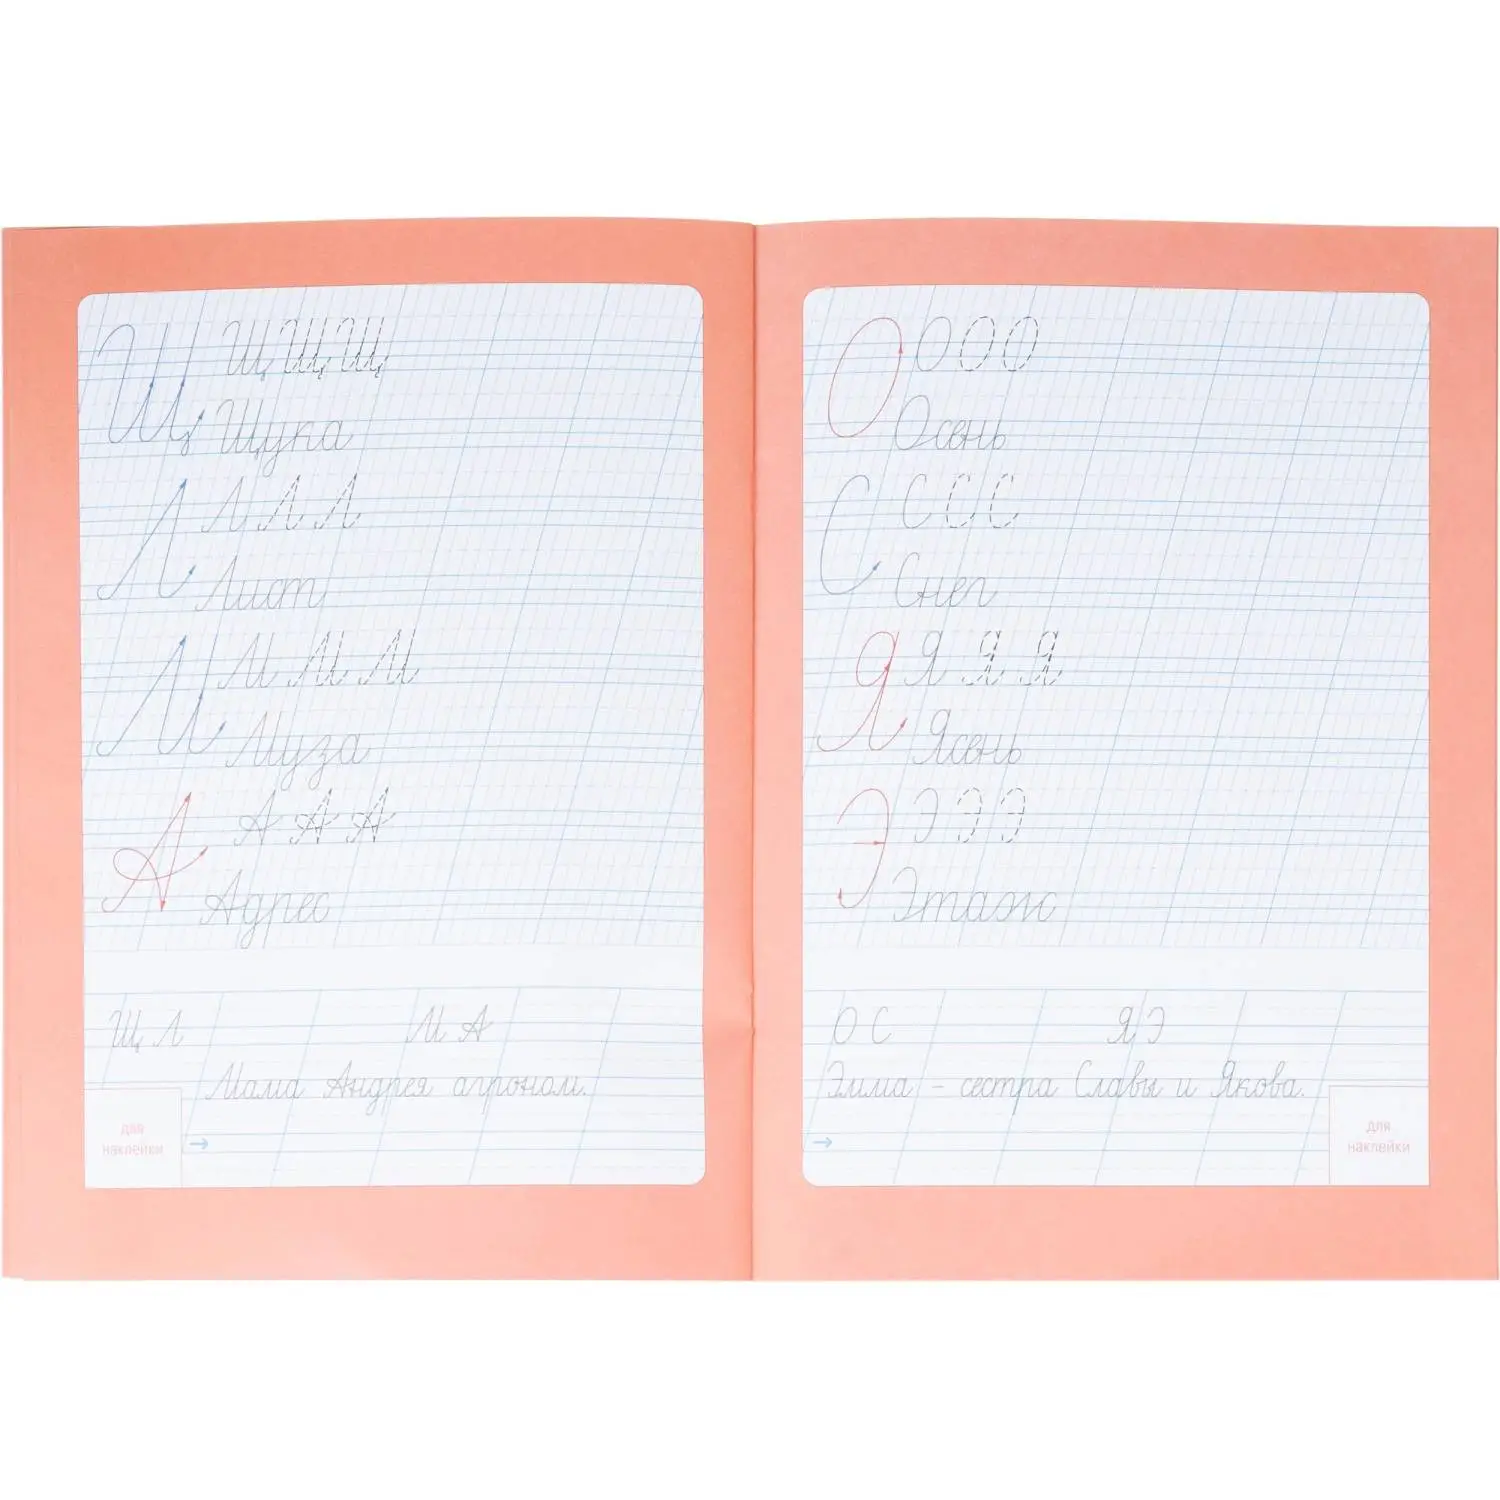 Щ Щ Щ Щ
Щука
Л Л Л Л
Лист
М М М М
Муза
А А А А
Адрес
Щ Л М А
Мама Андрея агроном.
для
наклейки
О О О О
Осень
С С С С
Снег
Я Я Я Я
Ясень
Э Э Э Э
Этаж
О С Я Э
Эмма - сестра Славы и Якова.
для
наклейки